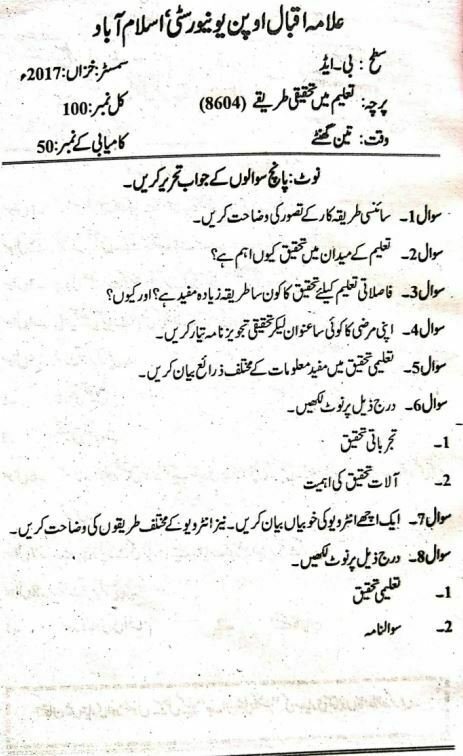 علامہ اقبال اوپن یونیورسٹی، اسلام آباد
سطح : بی۔ایڈ سمسٹر: خزاں: 2017ء
پرچہ: تعلیم میں تحقیقی طریقے (8604) کل نمبر: 100
وقت: تین گھنٹے کامیابی کے نمبر: 50
نوٹ: پانچ سوالوں کے جواب تحریر کریں۔
سوال 1۔ سائنسی طریقہ کار کے تصور کی وضاحت کریں۔
سوال 2۔ تعلیم کے میدان میں تحقیق کیوں اہم ہے؟
سوال 3۔ فاصلاتی تعلیم کیلئے تحقیق کا کون سا طریقہ زیادہ مفید ہے؟ اور کیوں؟
سوال 4۔ اپنی مرضی کا کوئی سا عنوان لیکر تحقیقی تجویز نامہ تیار کریں۔
سوال 5۔ تعلیمی تحقیق میں مفید معلومات کے مختلف ذرائع بیان کریں۔
سوال 6۔ درج ذیل پر نوٹ لکھیں۔
1۔ تجرباتی تحقیق
2۔ آلات تحقیق کی اہمیت
سوال 7۔ ایک اچھے انٹرویو کی خوبیاں بیان کریں۔ نیز انٹرویو کے مختلف طریقوں کی وضاحت کریں۔
سوال 8۔ درج ذیل پر نوٹ لکھیں۔
1۔ تعلیمی تحقیق
2۔ سوالنامہ